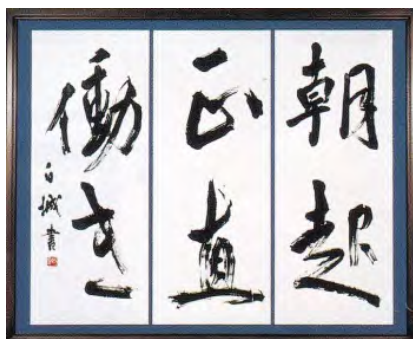 朝起
正直
働き
白城書